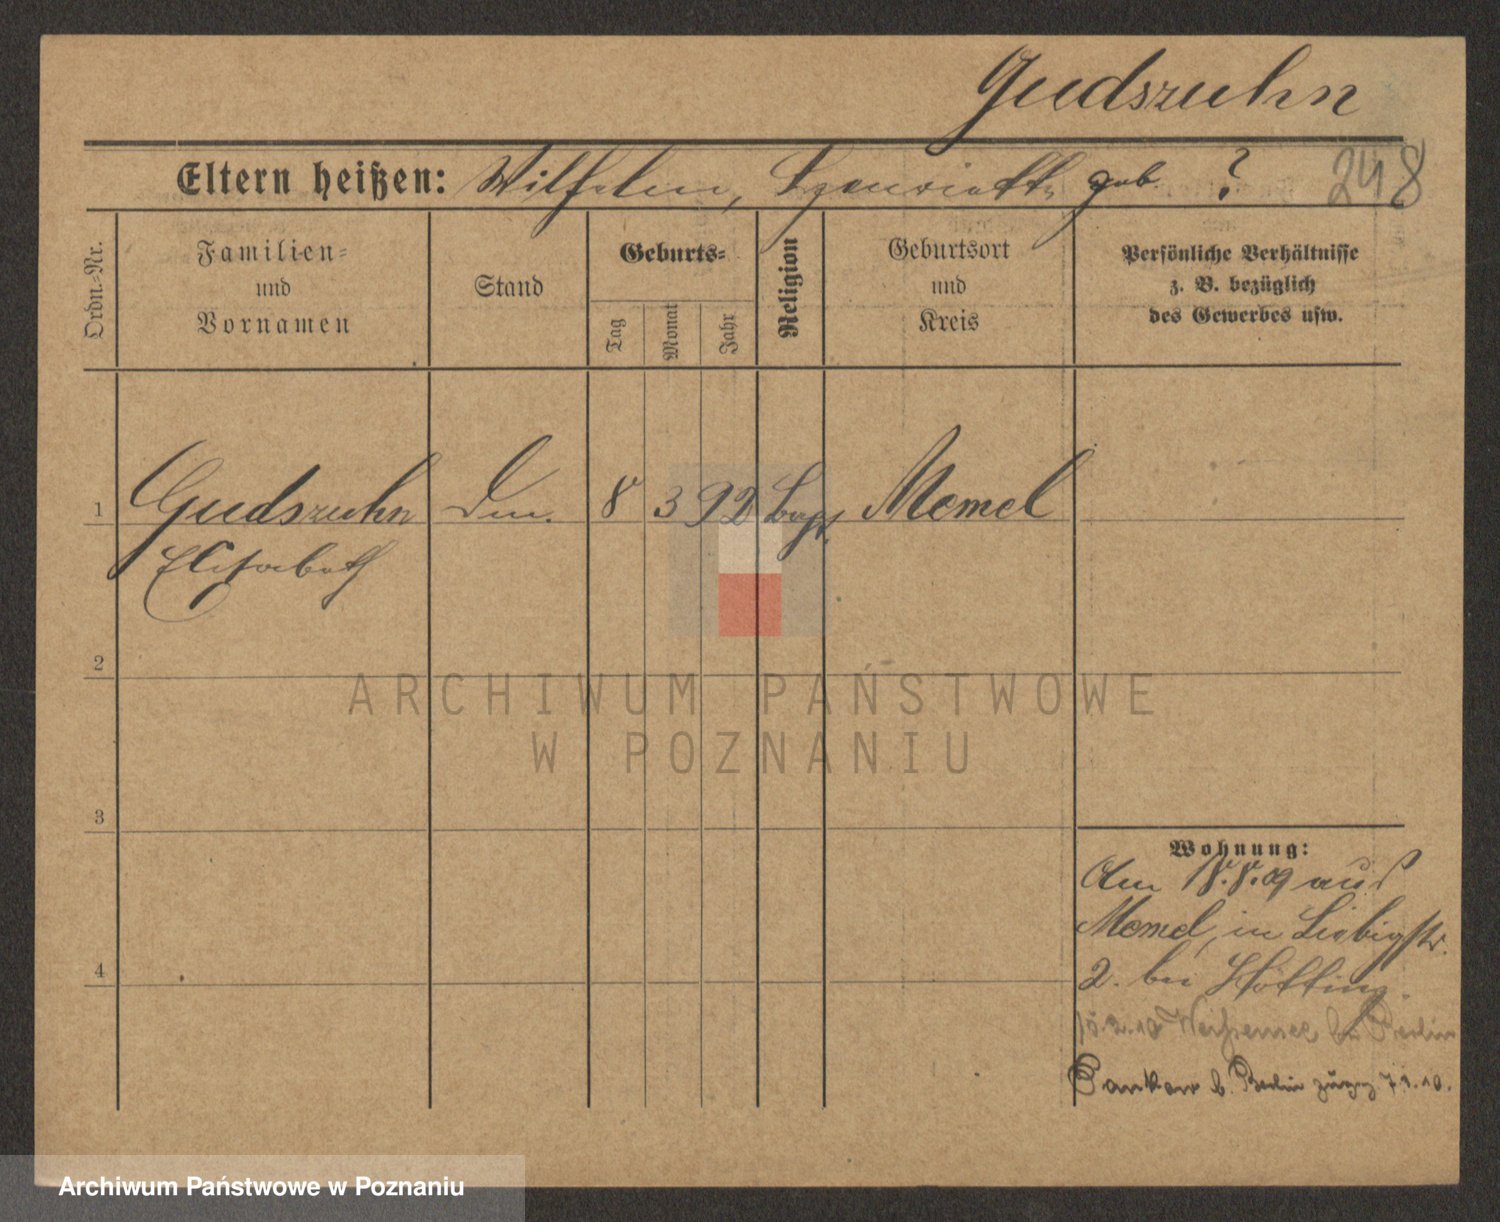 Gudszuhn
Eltern heißen: Wilhelm, Henriette geb. ?
248
Ordn.-Nr.
Familien=
und
Vornamen
Stand
Geburts=
Tag
Monat
Jahr
Religion
Geburtsort
und
Kreis
Persönliche Verhältnisse
z. B. bezüglich
des Gewerbes usw.
1 Gudszuhn 8 3 92 Memel
Elisabeth
2
ARCHIWUM PAŃSTWOWE
W POZNANIU
3
4
Wohnung:
Am 18.8.09 aus
Memel, in Liebigstr.
2. bei
15.2.10 Weißensee bei Berlin
Pankow b. Berlin 10.
Archiwum Państwowe w Poznaniu